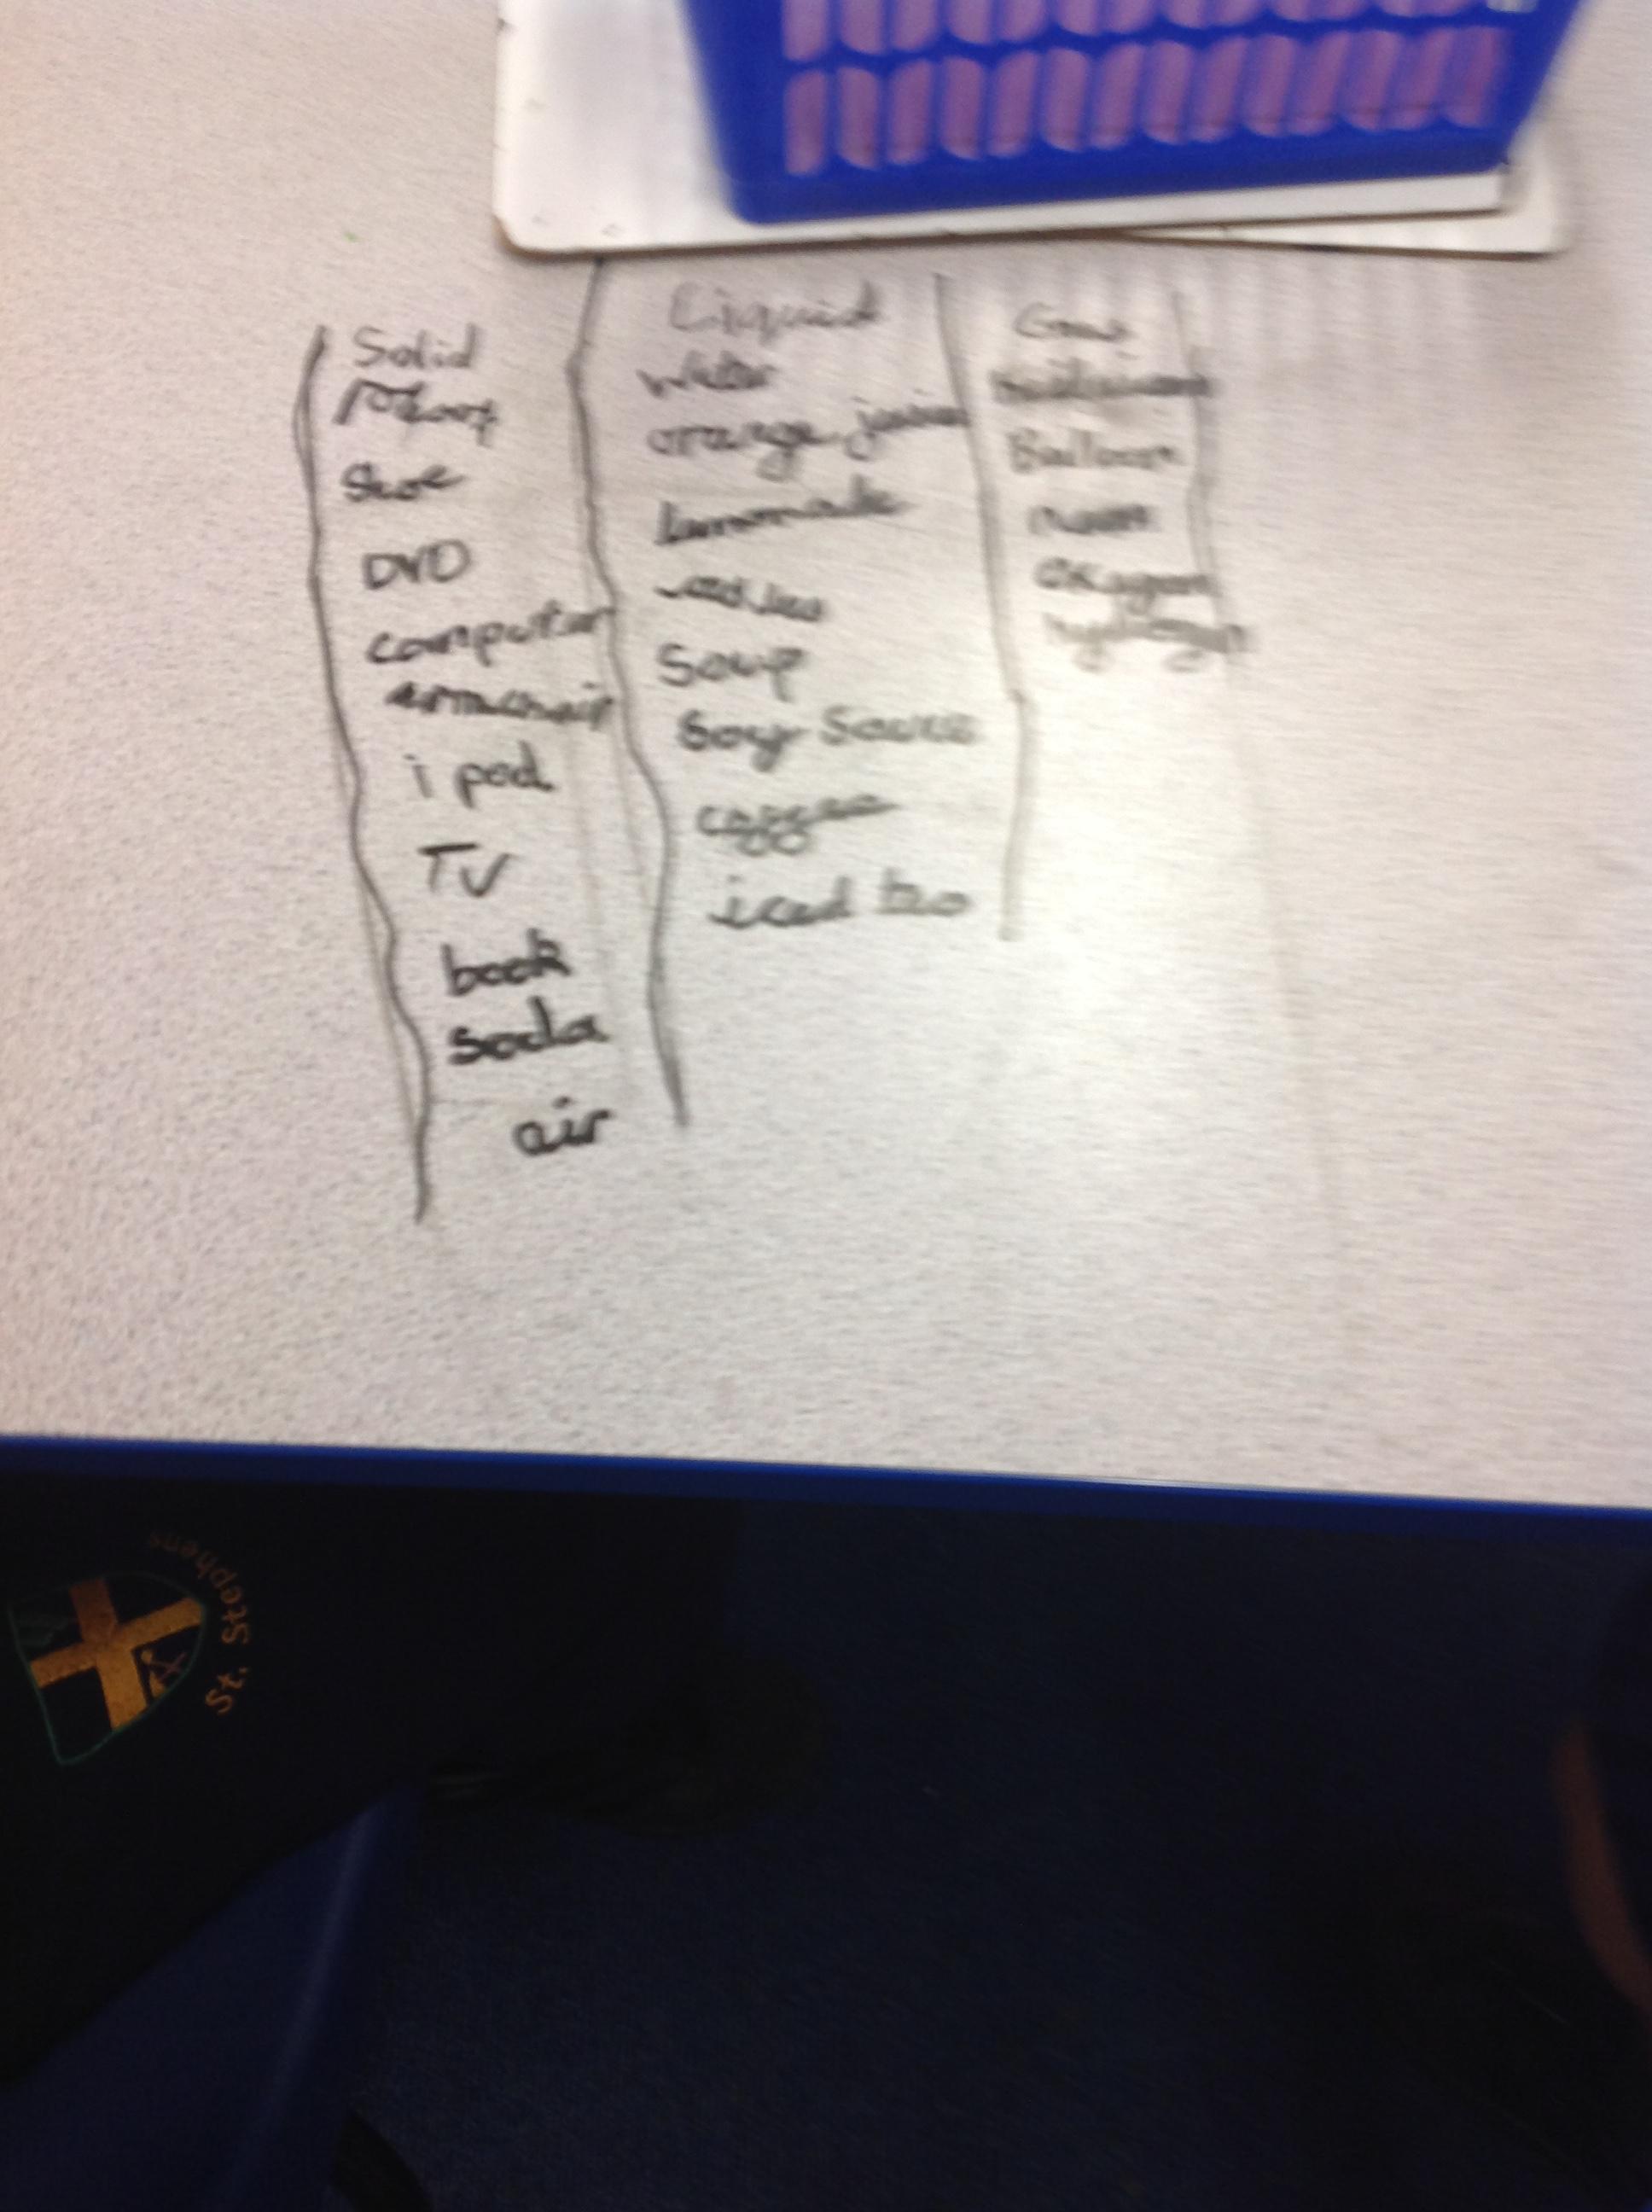 Solid
shoe
DVD
computer
armchair
i pod
TV
book
soda
air
Liquid
water
orange juice
lemonade
Soup
Soy Sauce
coffee
iced tea
Gas
Balloon
oxygen
hydrogen
St. Stephens